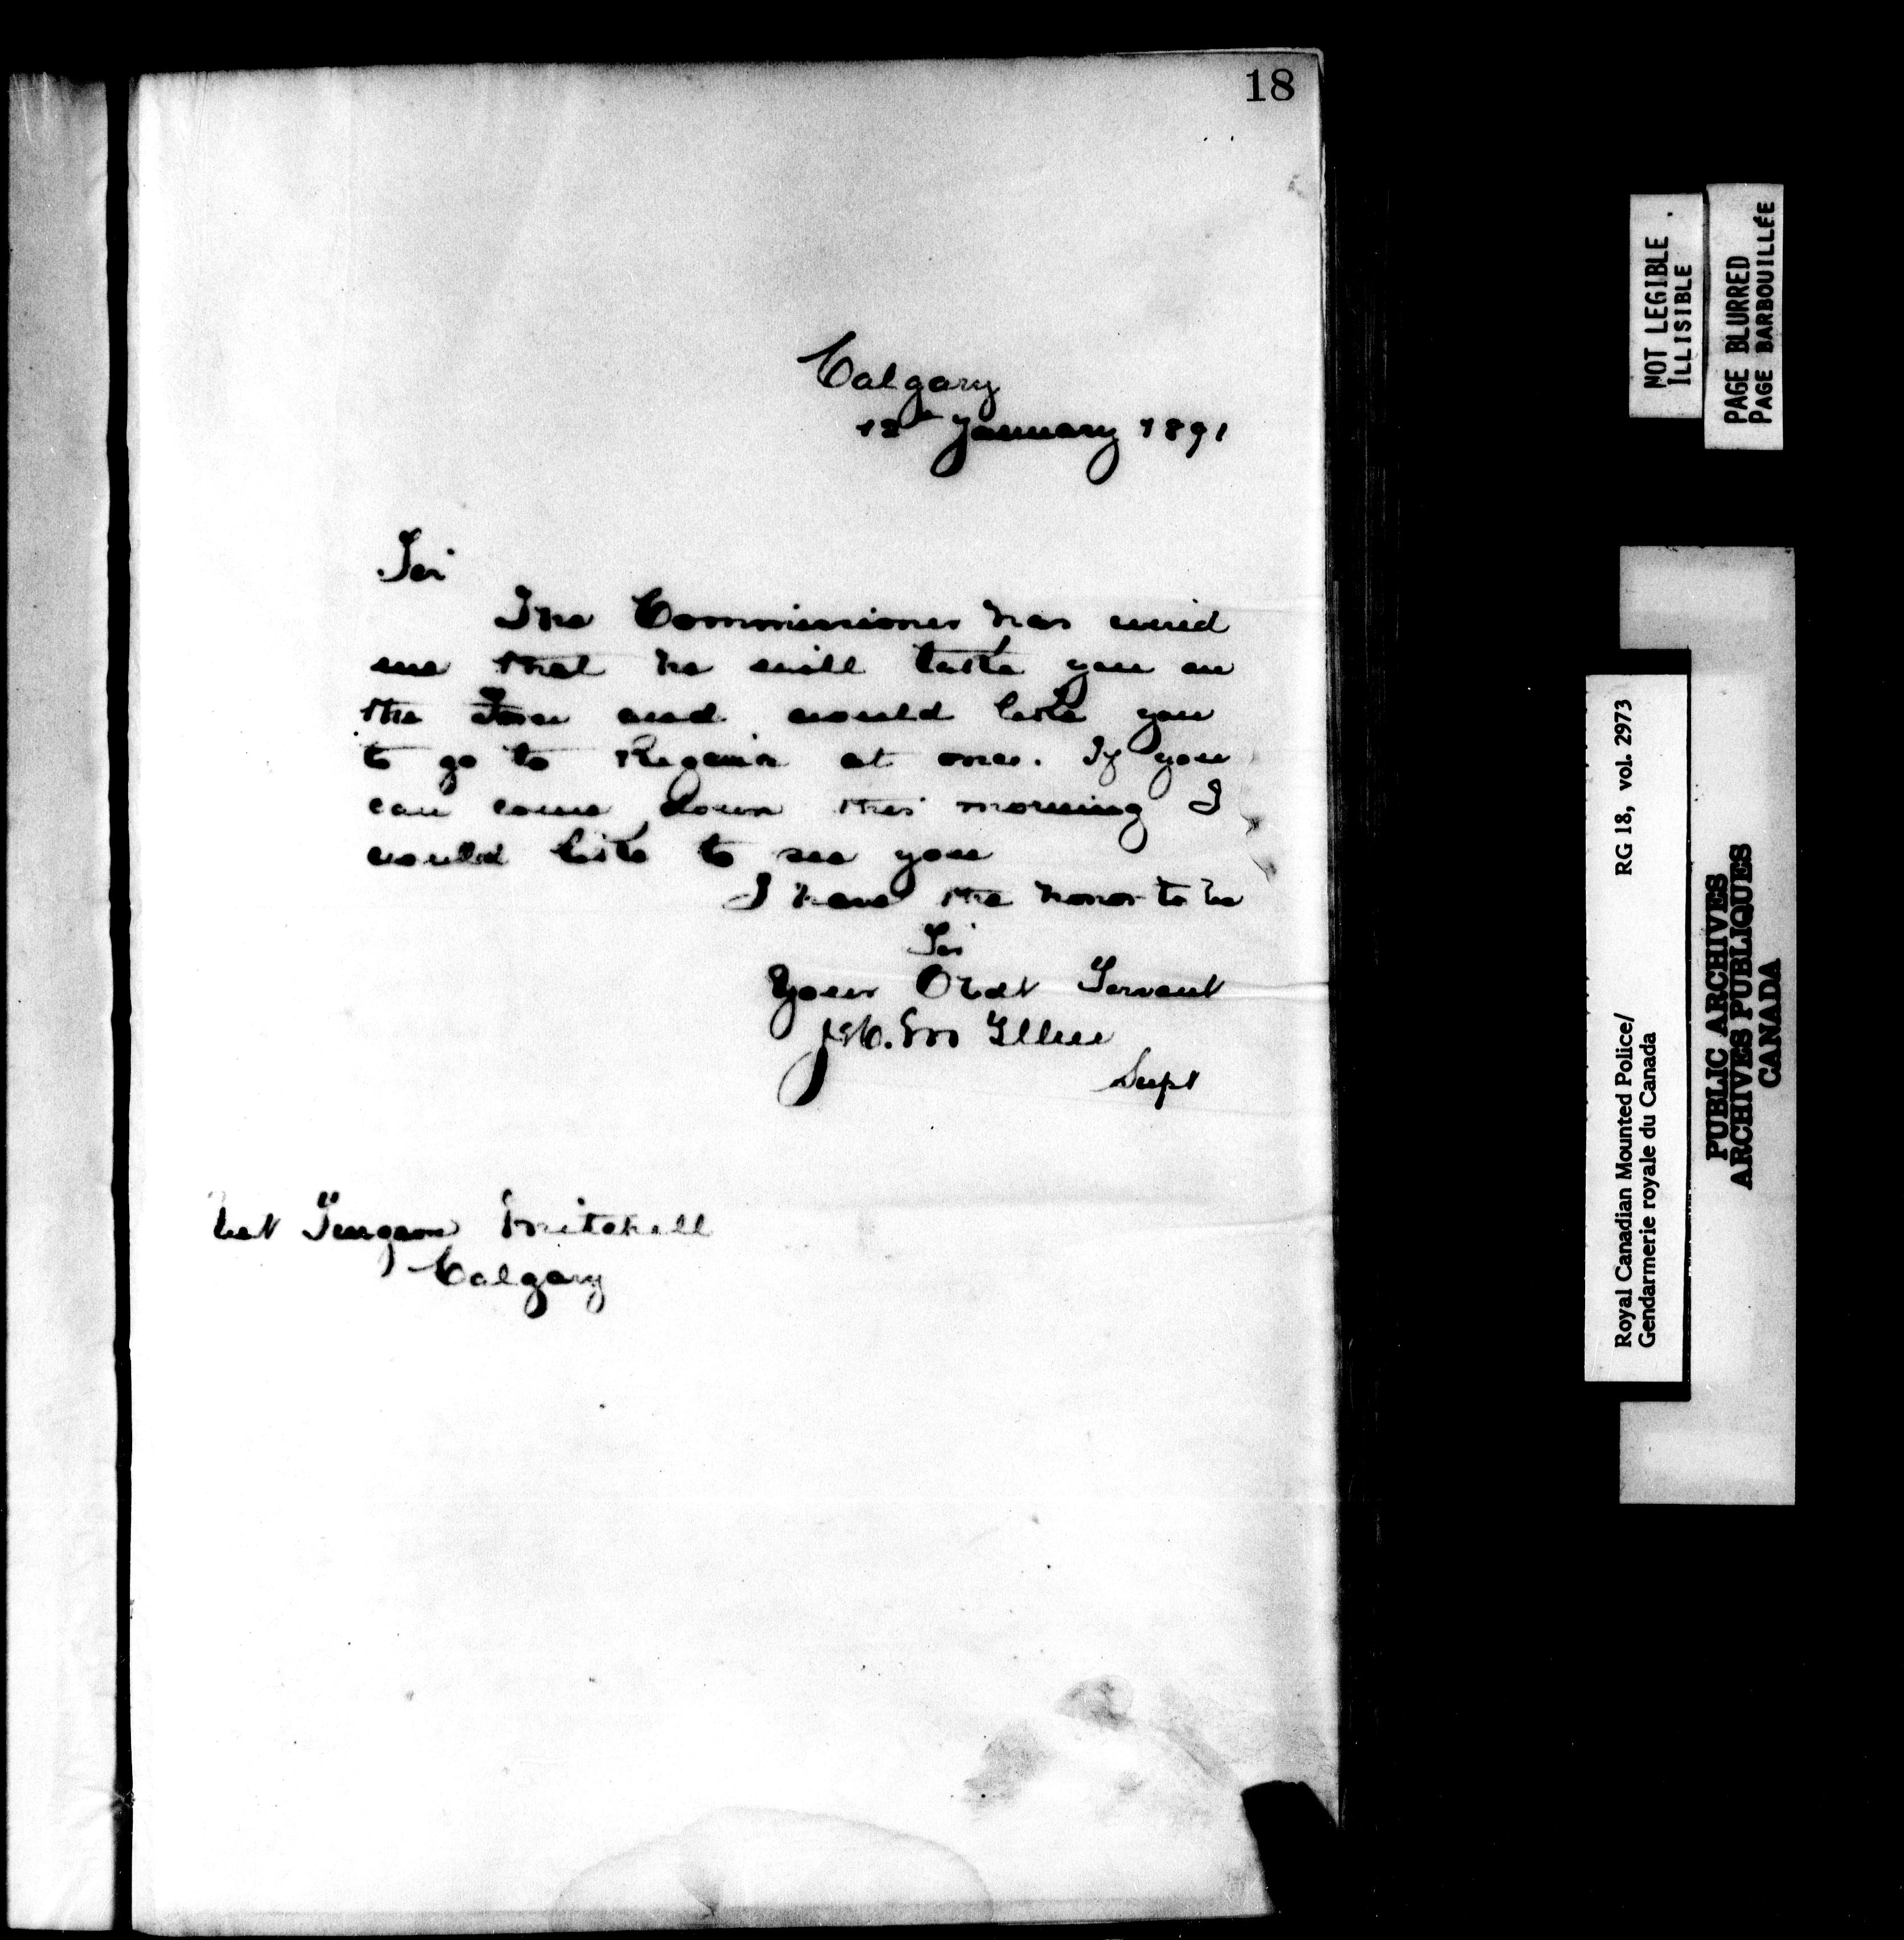 18
Calgary
12th January 1891
Sir
The Commissioner has wired
me that he will take you on
the Force and would like you
to go to Regina at once. If you
can come down this morning I
would like to see you
I have the honor to be
Sir
Your Obdt Servant
Supt
Vet Surgeon Mitchell
Calgary
NOT LEGIBLE
ILLISIBLE
PAGE BLURRED
PAGE BARBOUILLÉE
Royal Canadian Mounted Police/ RG 18, vol. 2973
Gendarmerie royale du Canada
PUBLIC ARCHIVES
ARCHIVES PUBLIQUES
CANADA